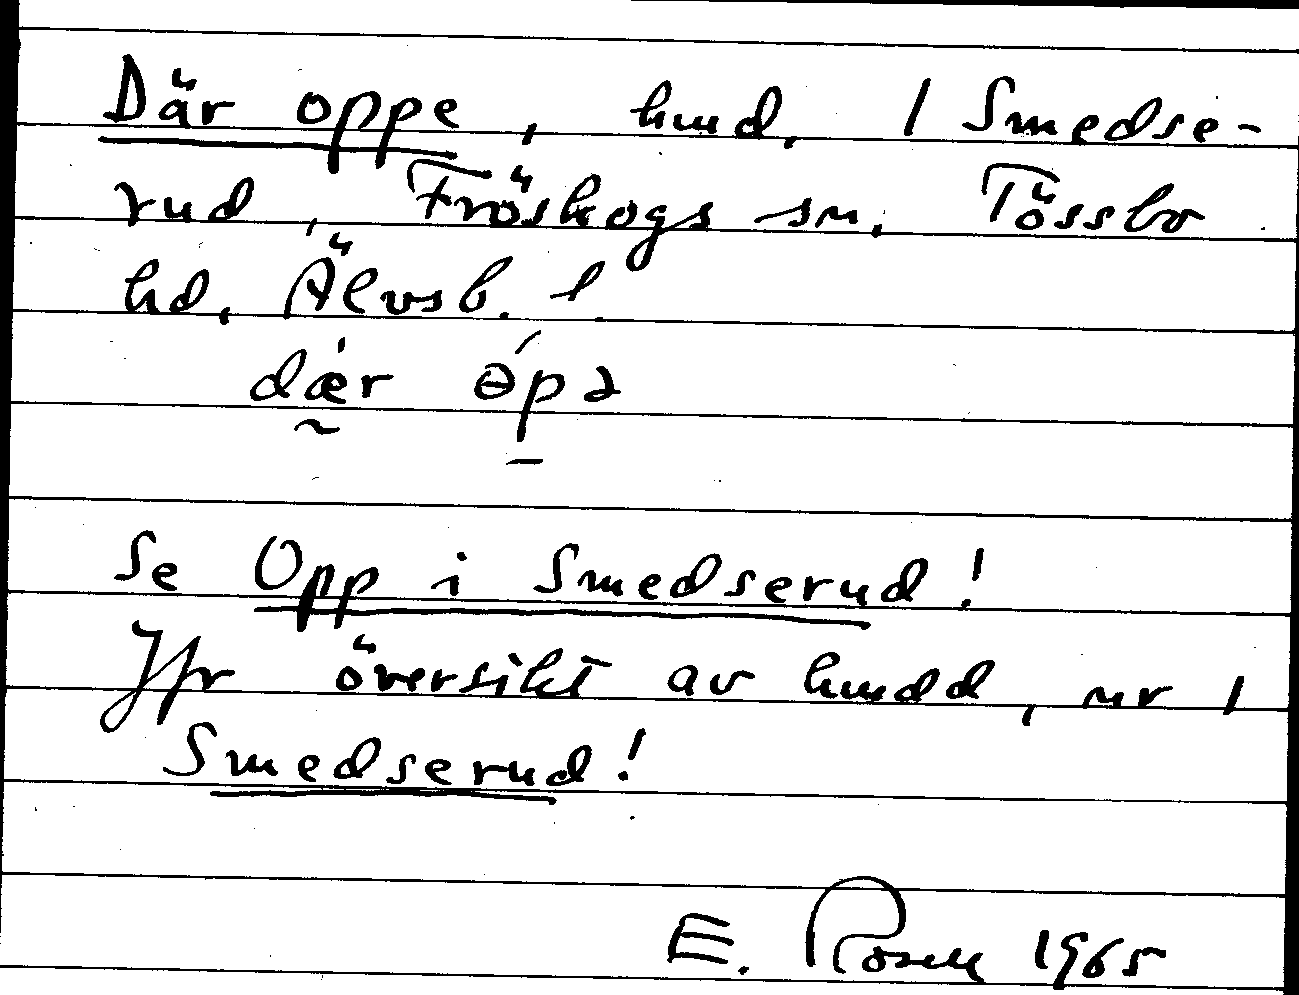 Där oppe, hmd, 1 Smedse-
rud, Fröskogs sn. Tössbo
hd, Älvsb. l.
dǽr ɵ́pə
Se Opp i Smedserud!
Jfr översikt av hmdd, nr 1
Smedserud!
E. Rosell 1965